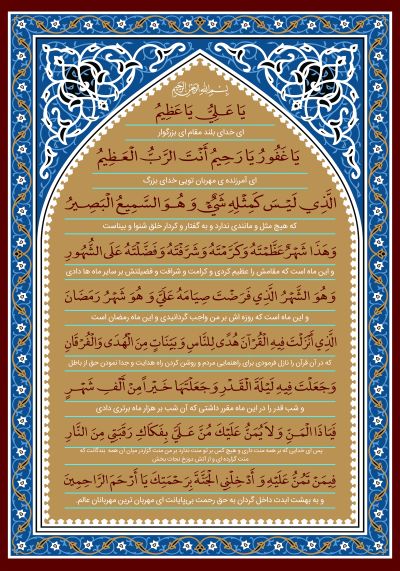 بِسْمِ اللهِ الرَّحْمنِ الرَّحِيمِ
يَا عَلِيُّ يَا عَظِيمُ
ای خدای بلند مقام ای بزرگوار
يَا غَفُورُ يَا رَحِيمُ أَنْتَ الرَّبُّ الْعَظِيمُ
ای آمرزنده ی مهربان تویی خدای بزرگ
الَّذِي لَيْسَ كَمِثْلِهِ شَيْءٌ وَ هُوَ السَّمِيعُ الْبَصِيرُ
که هیچ مثل و مانندی ندارد و به گفتار و کردار خلق شنوا و بیناست
وَ هَذَا شَهْرٌ عَظَّمْتَهُ وَ كَرَّمْتَهُ وَ شَرَّفْتَهُ وَ فَضَّلْتَهُ عَلَى الشُّهُورِ
و این ماه است که مقامش را عظیم کردی و کرامت و شرافت و فضیلتش بر سایر ماه ها دادی
وَ هُوَ الشَّهْرُ الَّذِي فَرَضْتَ صِيَامَهُ عَلَيَّ وَ هُوَ شَهْرُ رَمَضَانَ
و این ماه است که روزه اش بر من واجب گردانیدی و این ماه رمضان است
الَّذِي أَنْزَلْتَ فِيهِ الْقُرْآنَ هُدًى لِلنَّاسِ وَ بَيِّنَاتٍ مِنَ الْهُدَى وَ الْفُرْقَانِ
که در آن قرآن را نازل فرمودی برای راهنمایی مردم و روشن کردن راه هدایت و جدا نمودن حق از باطل
وَ جَعَلْتَ فِيهِ لَيْلَةَ الْقَدْرِ وَ جَعَلْتَهَا خَيْرًا مِنْ أَلْفِ شَهْرٍ
و شب قدر را در این ماه مقرر داشتی که آن شب بر هزار ماه برتری دادی
فَيَا ذَا الْمَنِّ وَ لَا يُمَنُّ عَلَيْكَ مُنَّ عَلَيَّ بِفَكَاكِ رَقَبَتِي مِنَ النَّارِ
پس ای خدایی که بر همه منت داری و هیچ کس بر تو منت ندارد بر من منت گزار در میان آن همه بندگانت که
منت گزارده ای و از آتش دوزخ نجات بخش
فِيمَنْ تَمُنُّ عَلَيْهِ وَ أَدْخِلْنِي الْجَنَّةَ بِرَحْمَتِكَ يَا أَرْحَمَ الرَّاحِمِينَ
و به بهشت ابدت داخل گردان به حق رحمت بی‌پایانت ای مهربان ترین مهربانان عالم.